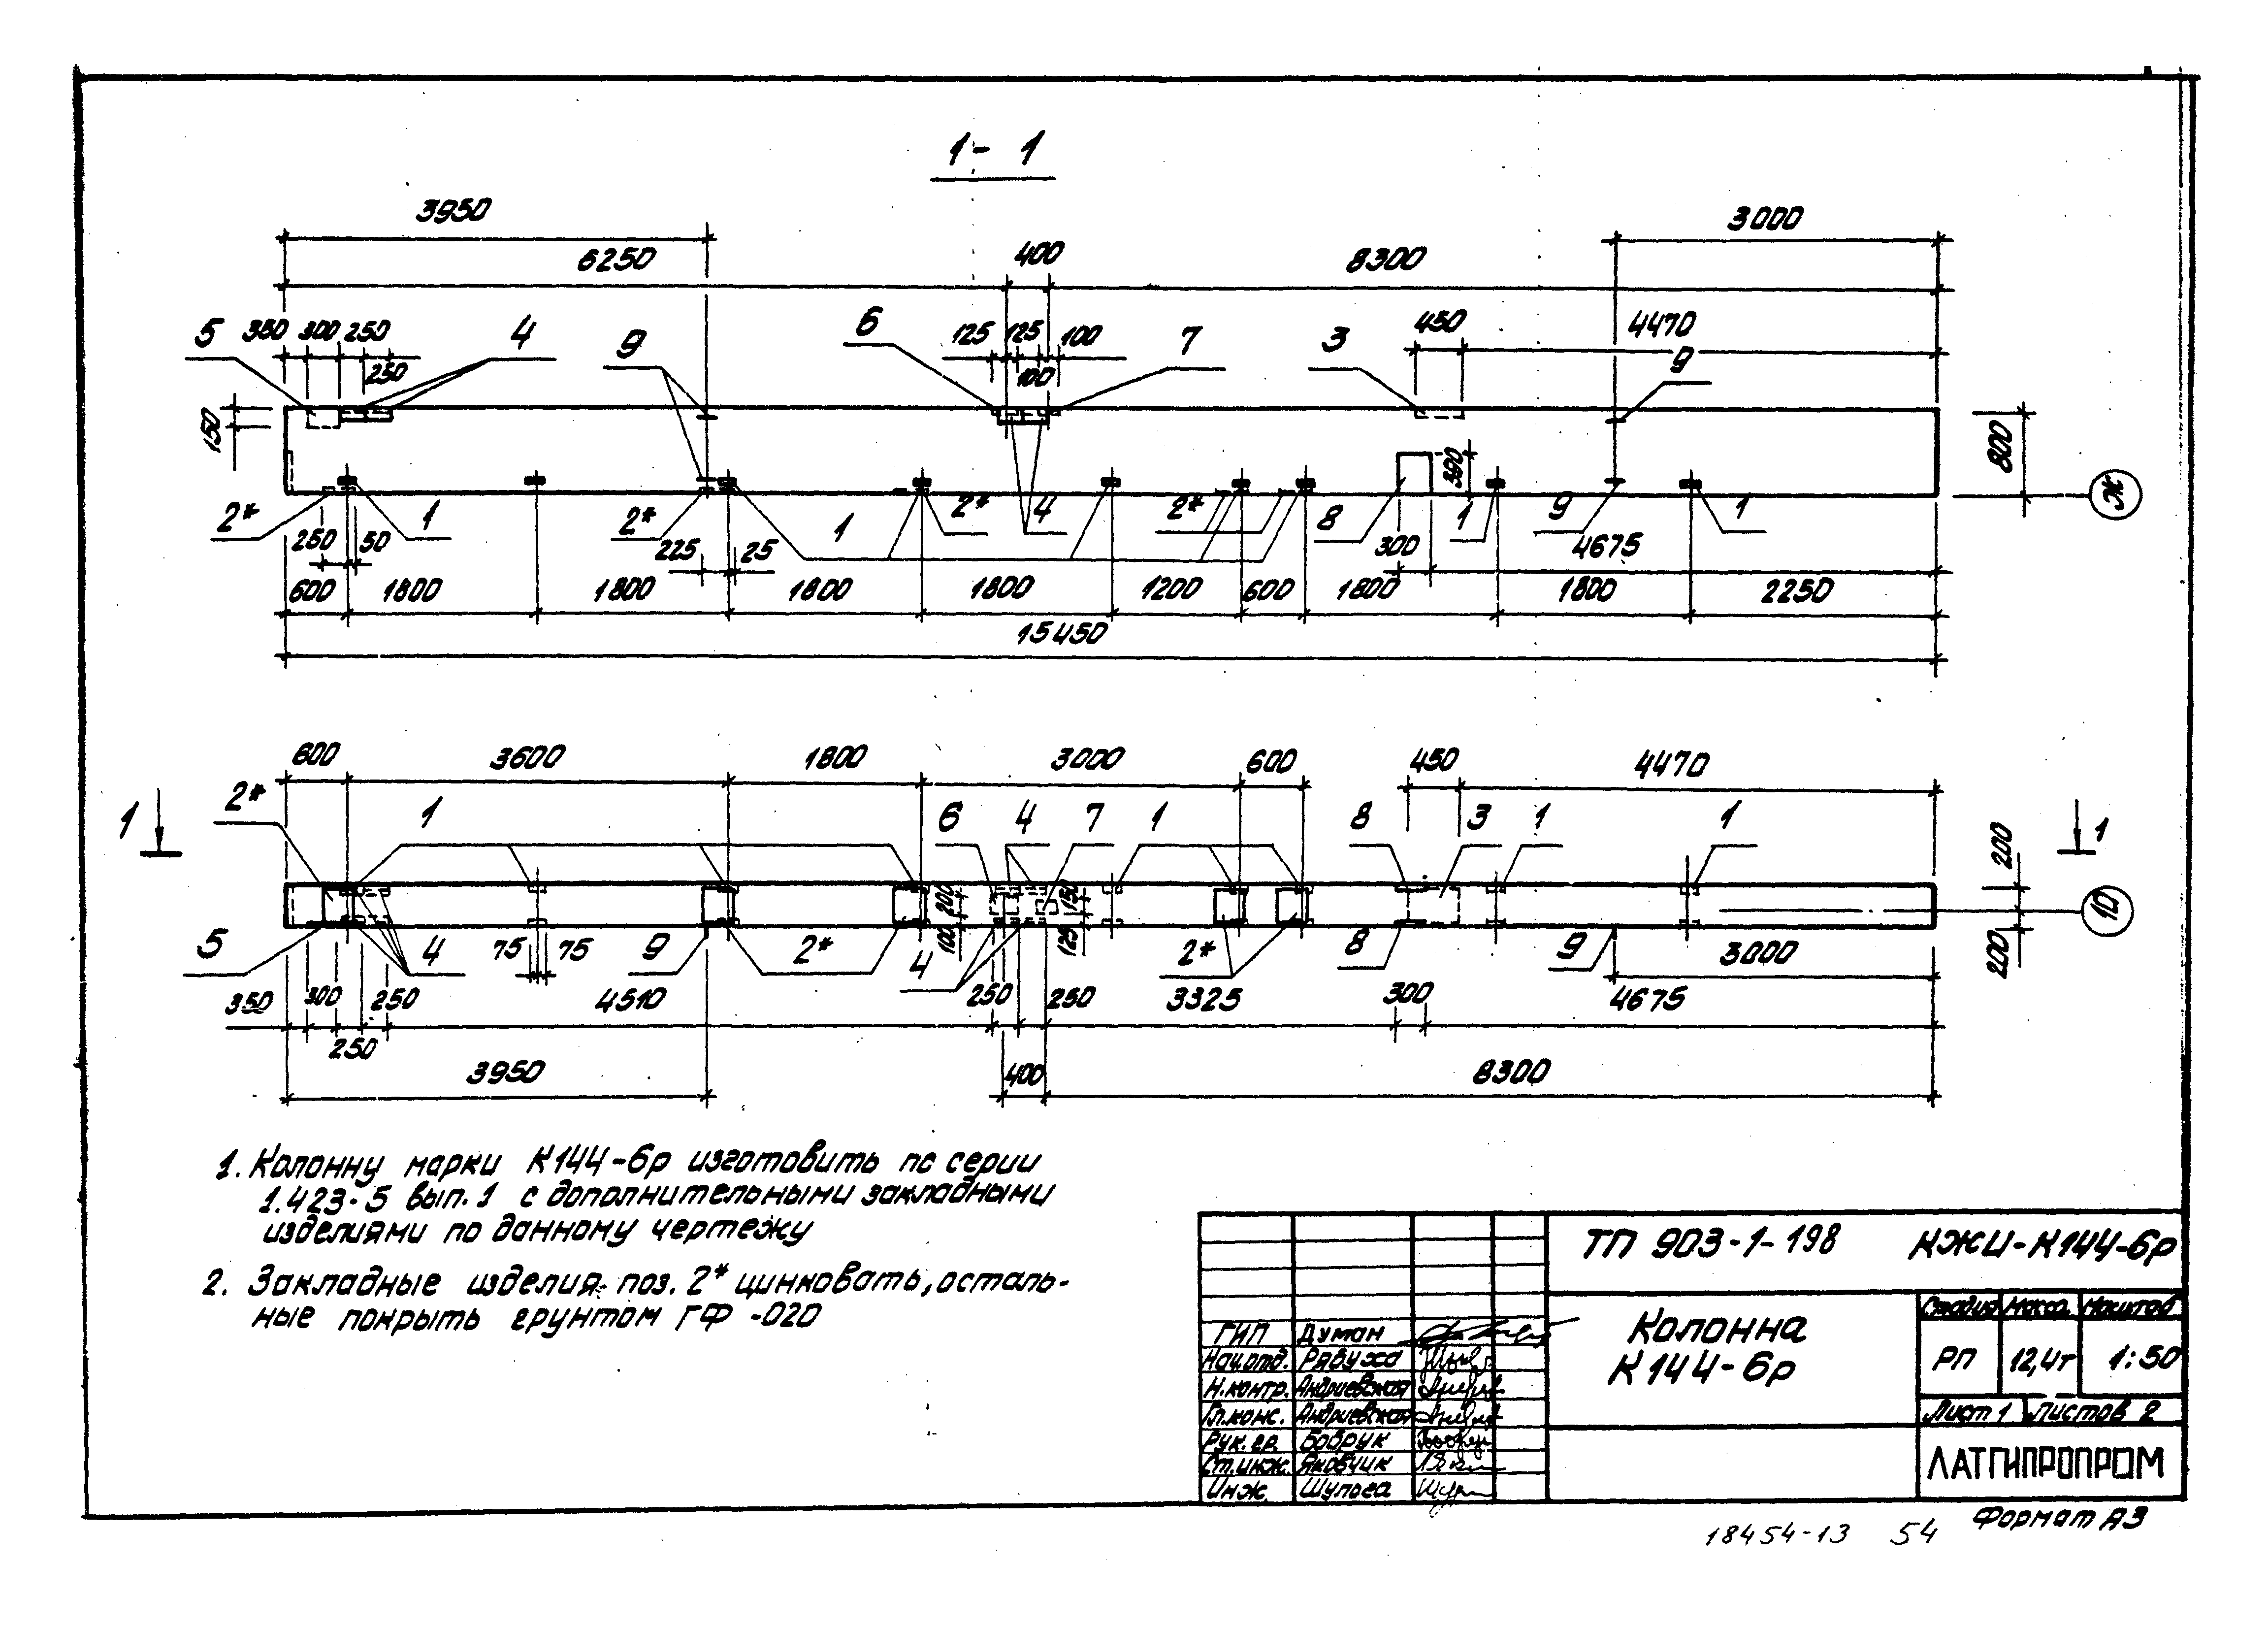 1-1
3950
3000
6250
400
8300
5
300
250
4
9
6
125
125
100
7
3
450
4470
250
100
9
150
300
800
Ж
2*
1
2*
1
2*
4
2*
8
1
9
1
250
50
225
25
300
4675
600
1800
1800
1800
1800
1200
600
1800
1800
2250
15450
600
3600
1800
3000
600
450
4470
1
2*
1
6
4
7
1
8
3
1
1
1
200
200
100
150
125
10
200
5
4
75
75
9
2*
4
2*
8
9
3000
350
300
250
4510
250
250
3325
300
4675
250
3950
400
8300
1. Колонну марки К144-6р изготовить по серии
1.423-5 вып.1 с дополнительными закладными
изделиями по данному чертежу
2. Закладные изделия поз. 2* цинковать, осталь-
ные покрыть грунтом ГФ-020
ТП 903-1-198 КЖИ-К144-6р
Колонна
К144-6р
Стадия Масса Масштаб
РП 12,4т 1:50
Лист 1 Листов 2
ЛАТГИПРОПРОМ
ГИП Думан
Нач.отд. Рябуха
Н.контр. Андриевская
Гл.конс. Андриевская
Рук.гр. Бобрук
Ст.инж. Яковчик
Инж. Шульга
Формат А3
18454-13 54